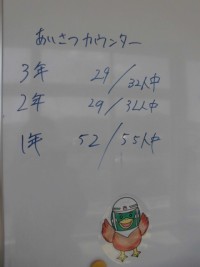 あいさつカウンター
3年 29/32人中
2年 29/32人中
1年 52/55人中